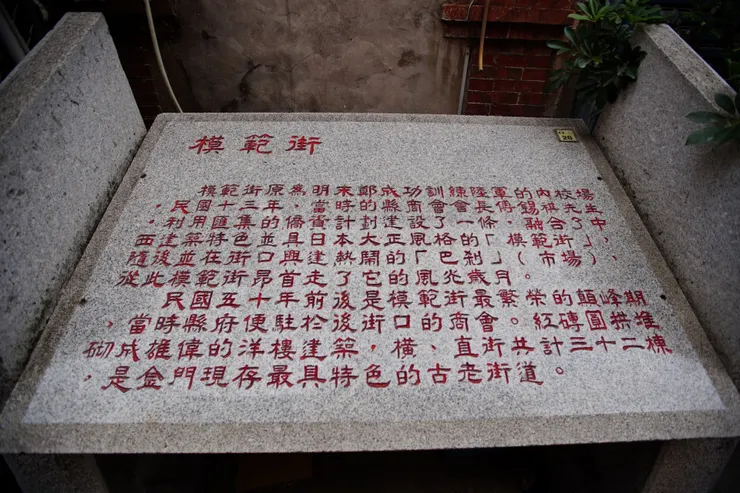 模範街
模範街原為明末鄭成功訓練陸軍的內校場
，民國十三年，當時的縣商會會長傅錫祺先生
，利用匯集的僑資計劃建設了一條，融合了中、
西建築特色並具日本大正風格的「模範街」，
隨後並在街口興建熱鬧的「巴刹」（市場），
從此模範街昂首走了它的風光歲月。
民國五十年前後是模範街最繁榮的顛峰期
，當時縣府便駐於後街口的商會。紅磚圓拱堆
砌成雄偉的洋樓建築，橫、直街共計三十二棟
，是金門現存最具特色的古老街道。
20